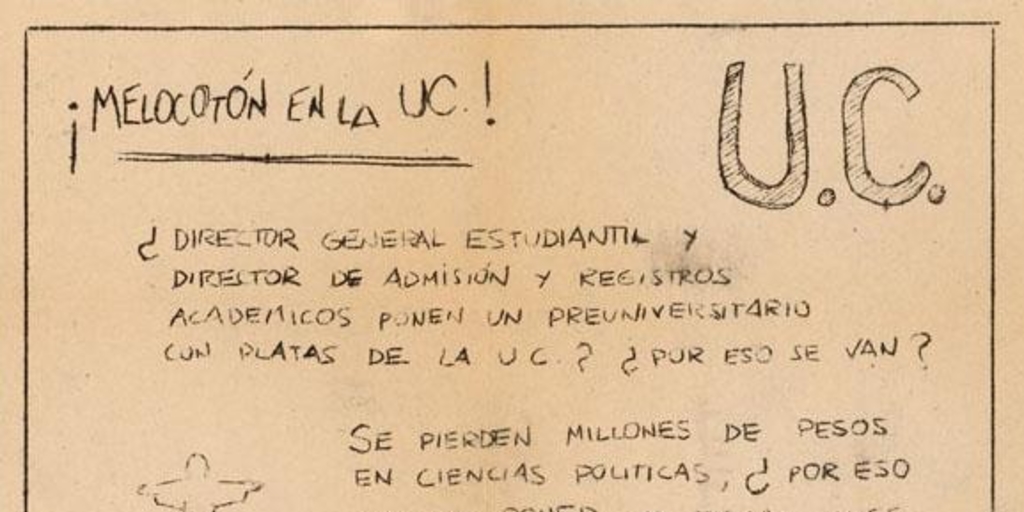 ¡MELOCOTÓN EN LA UC.!
U.C.
¿DIRECTOR GENERAL ESTUDIANTIL Y
DIRECTOR DE ADMISIÓN Y REGISTROS
ACADEMICOS PONEN UN PREUNIVERSITARIO
CON PLATAS DE LA UC.? ¿POR ESO SE VAN?
SE PIERDEN MILLONES DE PESOS
EN CIENCIAS POLITICAS, ¿POR ESO
PONER